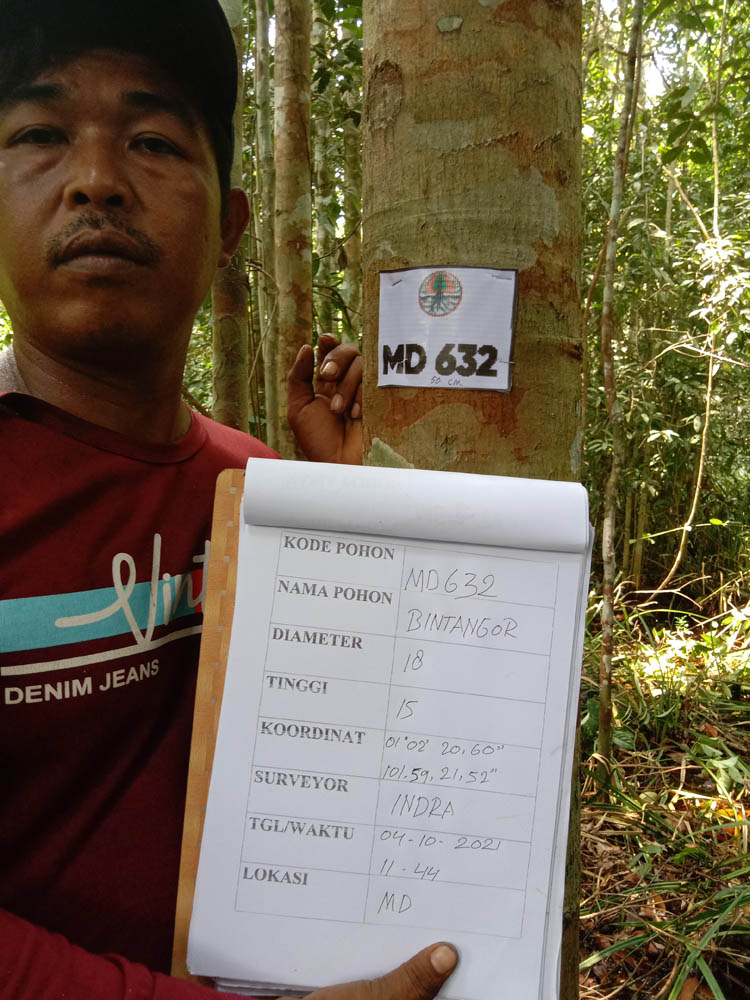 MD 632
50 CM
Vint
DENIM JEANS
KODE POHON MD632
NAMA POHON BINTANGOR
DIAMETER 18
TINGGI 15
KOORDINAT 01°02' 20,60"
101.59,21,52"
SURVEYOR INDRA
TGL/WAKTU 04-10-2021
11-44
LOKASI MD